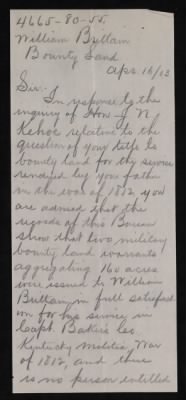 4665-80-55.
William Brittain
Bounty Land
Apr. 16/13
Sir:-
In response to the
inquiry of Hon. J. N.
Kehoe relative to the
question of your title to
bounty land for the service
rendered by your father
in the war of 1812, you
are advised that the
records of this Bureau
show that two military
bounty land warrants
aggregating 160 acres
were issued to William
Brittain, in full satisfact
ion for his service in
Capt. Co.
Kentucky Militia, War
of 1812, and there
is no person entitled